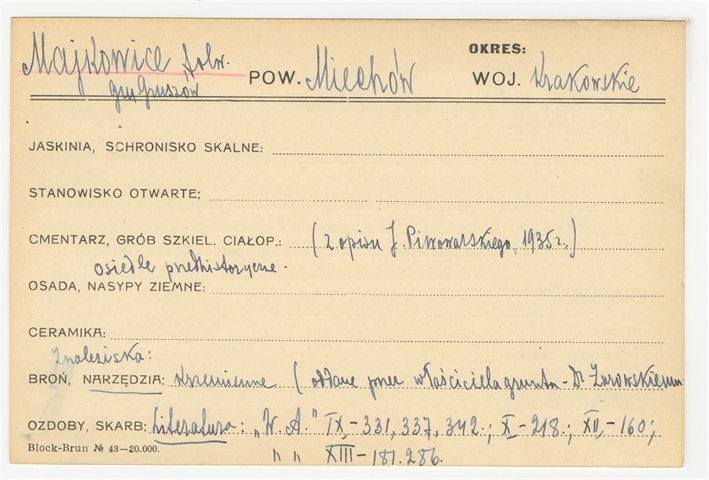 OKRES:
Majkowice folw. POW. Miechów WOJ. Krakowskie
gm Gruszów
JASKINIA, SCHRONISKO SKALNE:
STANOWISKO OTWARTE:
CMENTARZ, GRÓB SZKIEL. CIAŁOP.: (z opisu J. Piwowarskiego, 1935 r.)
osiedle prehistoryczne.
OSADA, NASYPY ZIEMNE:
CERAMIKA:
Znaleziska:
BROŃ, NARZĘDZIA: krzemienne (oddane przez właściciela gruntu - Dr Żurowskiemu
OZDOBY, SKARB: Literatura: „W. A." IX,-331, 337, 342.; X-218.; XII,-160;
Block-Brun № 43—20.000. " " XIII-181. 286.